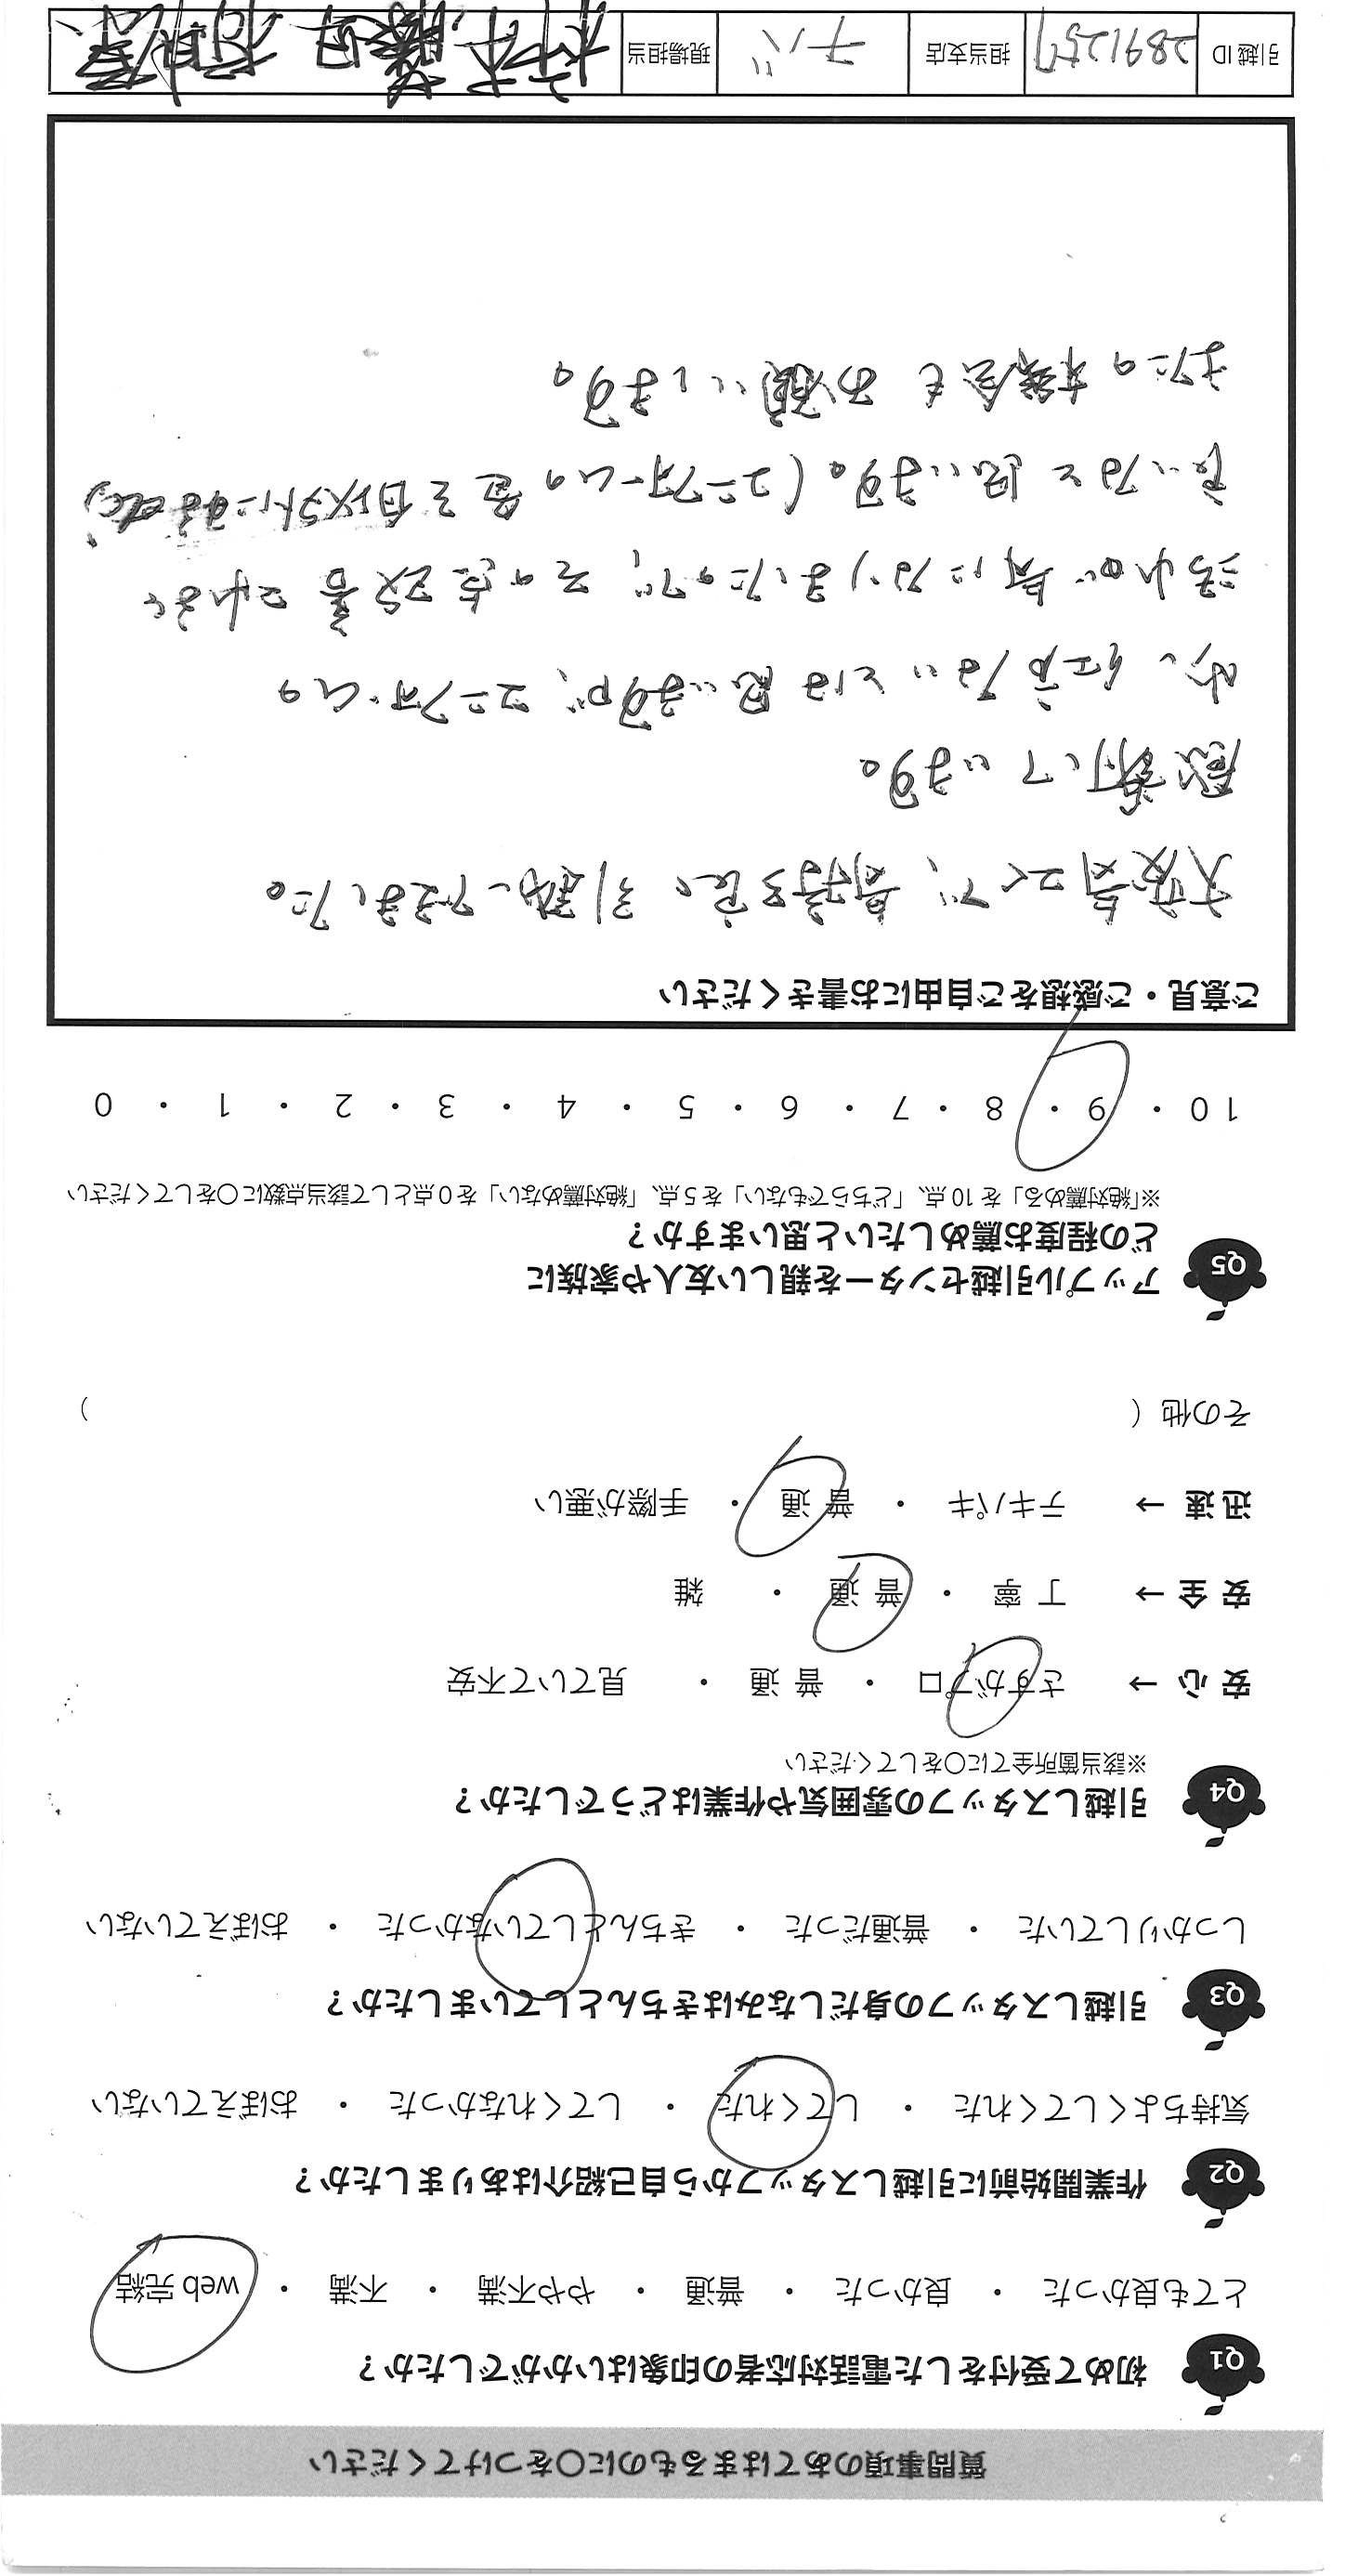 質問事項のあてはまるものに〇をつけてください
Q1 初めて受付をした電話対応者の印象はいかがでしたか？
とても良かった ・ 良かった ・ 普通 ・ やや不満 ・ 不満 ・ web 完結
Q2 作業開始前に引越しスタッフから自己紹介はありましたか？
気持ちよくしてくれた ・ してくれた ・ してくれなかった ・ おぼえていない
Q3 引越しスタッフの身だしなみはきちんとしていましたか？
しっかりしていた ・ 普通だった ・ きちんとしていなかった ・ おぼえていない
Q4 引越しスタッフの雰囲気や作業はどうでしたか？
※該当箇所全てに〇をしてください
安 心 → さすがプロ ・ 普 通 ・ 見ていて不安
安 全 → 丁 寧 ・ 普 通 ・ 雑
迅 速 → テキパキ ・ 普 通 ・ 手際が悪い
その他（ ）
Q5 アップル引越センターを親しい友人や家族に
どの程度お薦めしたいと思いますか？
※「絶対薦める」を10点、「どちらでもない」を5点、「絶対薦めない」を0点として該当点数に〇をしてください
10 ・ 9 ・ 8 ・ 7 ・ 6 ・ 5 ・ 4 ・ 3 ・ 2 ・ 1 ・ 0
ご意見・ご感想をご自由にお書きください
大変気さくで、気持ち良く引越しできました。
感謝しています。
少し仕方ないとは思いますが、ユニフォームの
汚れが気になりましたので、その点改善されると
良いなと思います。(ユニフォームの色を白以外にするetc)
またの機会もお願いします。
引越ID 2891257 担当支店 チバ 現場担当